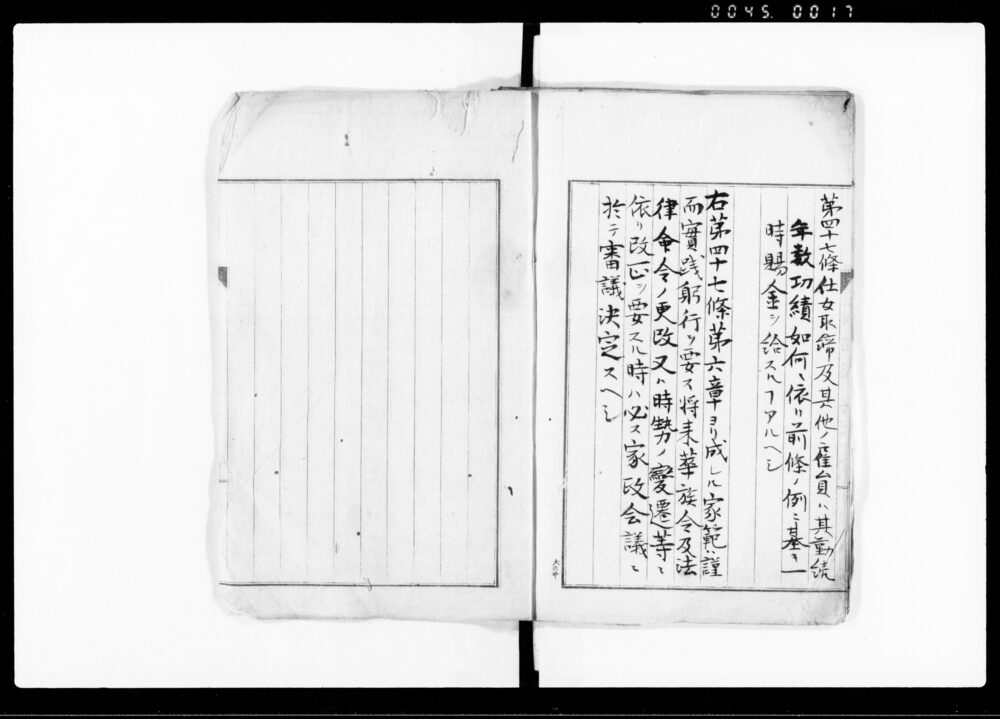 0045.0017
第四十七條仕女取締及其他ノ雇員ハ其勤続
年数功績如何ニ依リ前條ノ例ニ基キ一
時賜金ヲ給スルヿアルヘシ
右第四十七條第六章ヨリ成レル家範ハ謹
而實践躬行ヲ要ス将来華族令及法
律命令ノ更改又ハ時勢ノ變遷等ニ
依リ改正ヲ要スル時ハ必ス家政会議ニ
於テ審議決定スヘシ